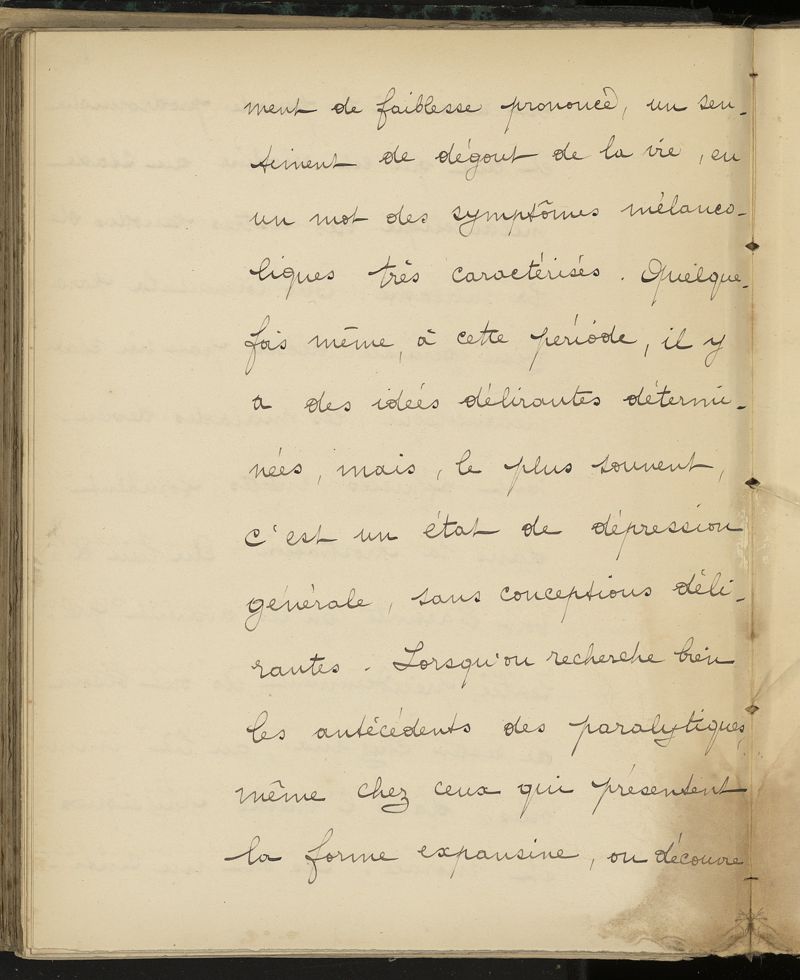 ment de faiblesse prononcé, un sen-
timent de dégout de la vie, en
un mot des symptômes mélanco-
liques très caractérisés. Quelque-
fois même, à cette période, il y
a des idées délirantes détermi-
nées, mais, le plus souvent,
c'est un état de dépression
générale, sans conceptions déli-
rantes. Lorsqu'on recherche bien
les antécédents des paralytiques,
même chez ceux qui présentent
la forme expansive, on découvre